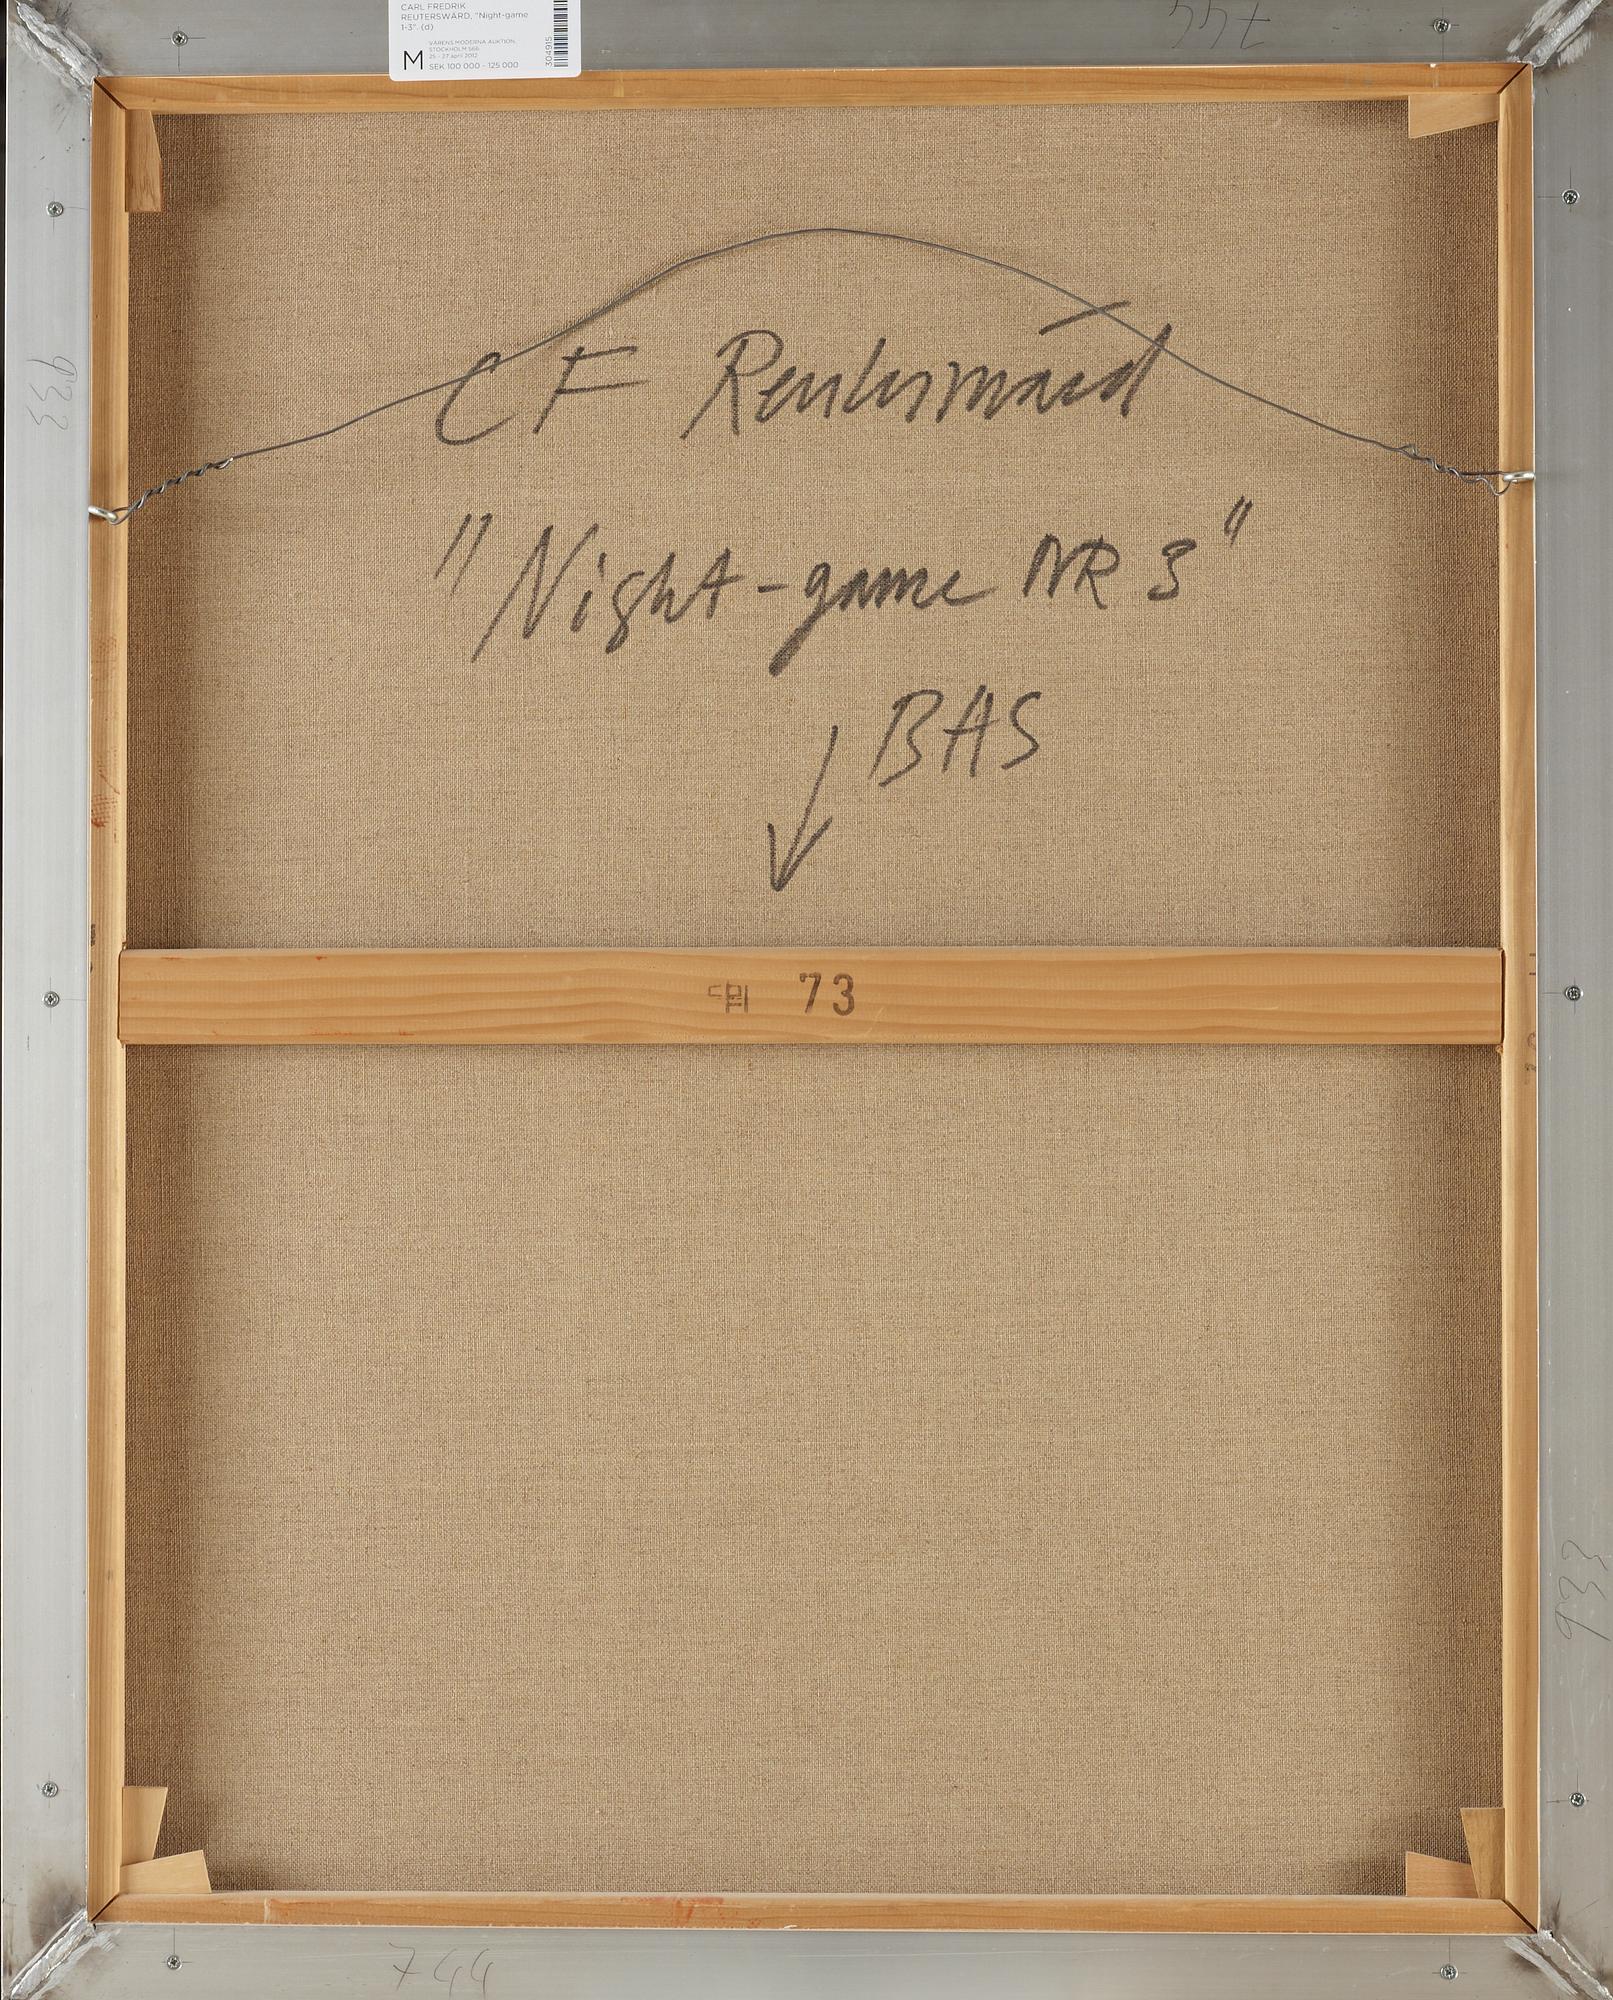 CARL FREDRIK
REUTERSWÄRD, "Night-game
1-3". (d)
VÅRENS MODERNA AUKTION,
STOCKHOLM 566
25 - 27 april 2012
M SEK 100 000 - 125 000
304915
744
933
CF Reuterswärd
"Night-game NR 3"
BAS
73
933
744